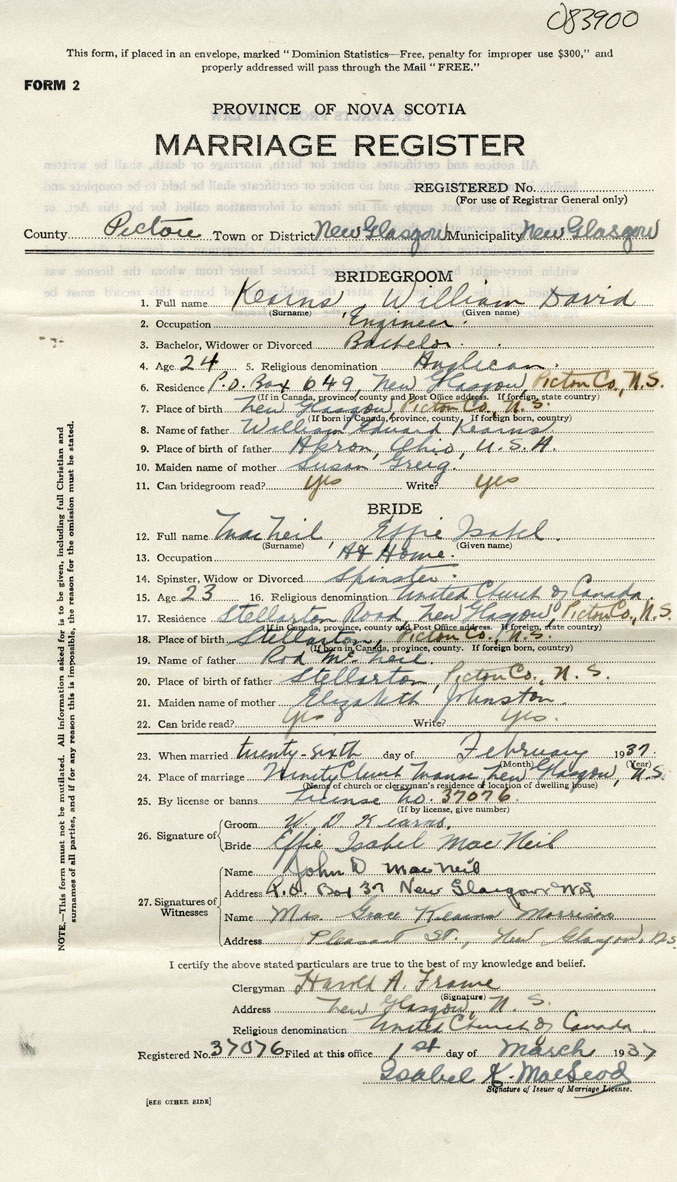 083900
This form, if placed in an envelope, marked "Dominion Statistics—Free, penalty for improper use $300," and
properly addressed will pass through the Mail "FREE."
FORM 2
PROVINCE OF NOVA SCOTIA
MARRIAGE REGISTER
REGISTERED No.
(For use of Registrar General only)
County Pictou Town or District New Glasgow Municipality New Glasgow
BRIDEGROOM
1. Full name Kearns, William David
(Surname) (Given name)
2. Occupation Engineer.
3. Bachelor, Widower or Divorced Bachelor.
4. Age 24 5. Religious denomination Anglican.
6. Residence P.O. Box 649, New Glasgow, Pictou Co., N.S.
(If in Canada, province, county and Post Office address. If foreign, state country)
7. Place of birth New Glasgow, Pictou Co., N.S.
(If born in Canada, province, county, If foreign born, country)
8. Name of father William Edward Kearns
9. Place of birth of father Akron, Ohio, U.S.A.
10. Maiden name of mother Susan Greig.
11. Can bridegroom read? yes Write? yes
BRIDE
12. Full name MacNeil, Effie Isabel.
(Surname) (Given name)
13. Occupation At Home.
14. Spinster, Widow or Divorced Spinster.
15. Age 23 16. Religious denomination United Church of Canada.
17. Residence Stellarton Road, New Glasgow, Pictou Co., N.S.
(If in Canada, province, county and Post Office address. If foreign, state country)
18. Place of birth Stellarton, Pictou Co., N.S.
(If born in Canada, province, county. If foreign born, country)
19. Name of father Rod McNeil.
20. Place of birth of father Stellarton, Pictou Co., N.S.
21. Maiden name of mother Elizabeth Johnston.
22. Can bride read? yes Write? yes.
23. When married twenty-sixth day of February 1937.
(Month) (Year)
24. Place of marriage Trinity Church Manse, New Glasgow, N.S.
(Name of church or clergyman's residence or location of dwelling house)
25. By license or banns License no. 37076
(If by license, give number)
26. Signature of
Groom W. D. Kearns.
Bride Effie Isabel MacNeil
27. Signatures of Witnesses
Name John D MacNeil
Address P.O. Box 37 New Glasgow NS
Name Mrs. Grace Kearns Morrison
Address Pleasant St., New Glasgow, N.S.
I certify the above stated particulars are true to the best of my knowledge and belief.
Clergyman Harold A. Frame
(Signature)
Address New Glasgow, N.S.
Religious denomination United Church of Canada
Registered No. 37076 Filed at this office 1st day of March 1937
Isabel K. MacLeod
Signature of Issuer of Marriage License.
[SEE OTHER SIDE]
NOTE.—This form must not be mutilated. All information asked for is to be given, including full Christian and
surnames of all parties, and if for any reason this is impossible, the reason for the omission must be stated.